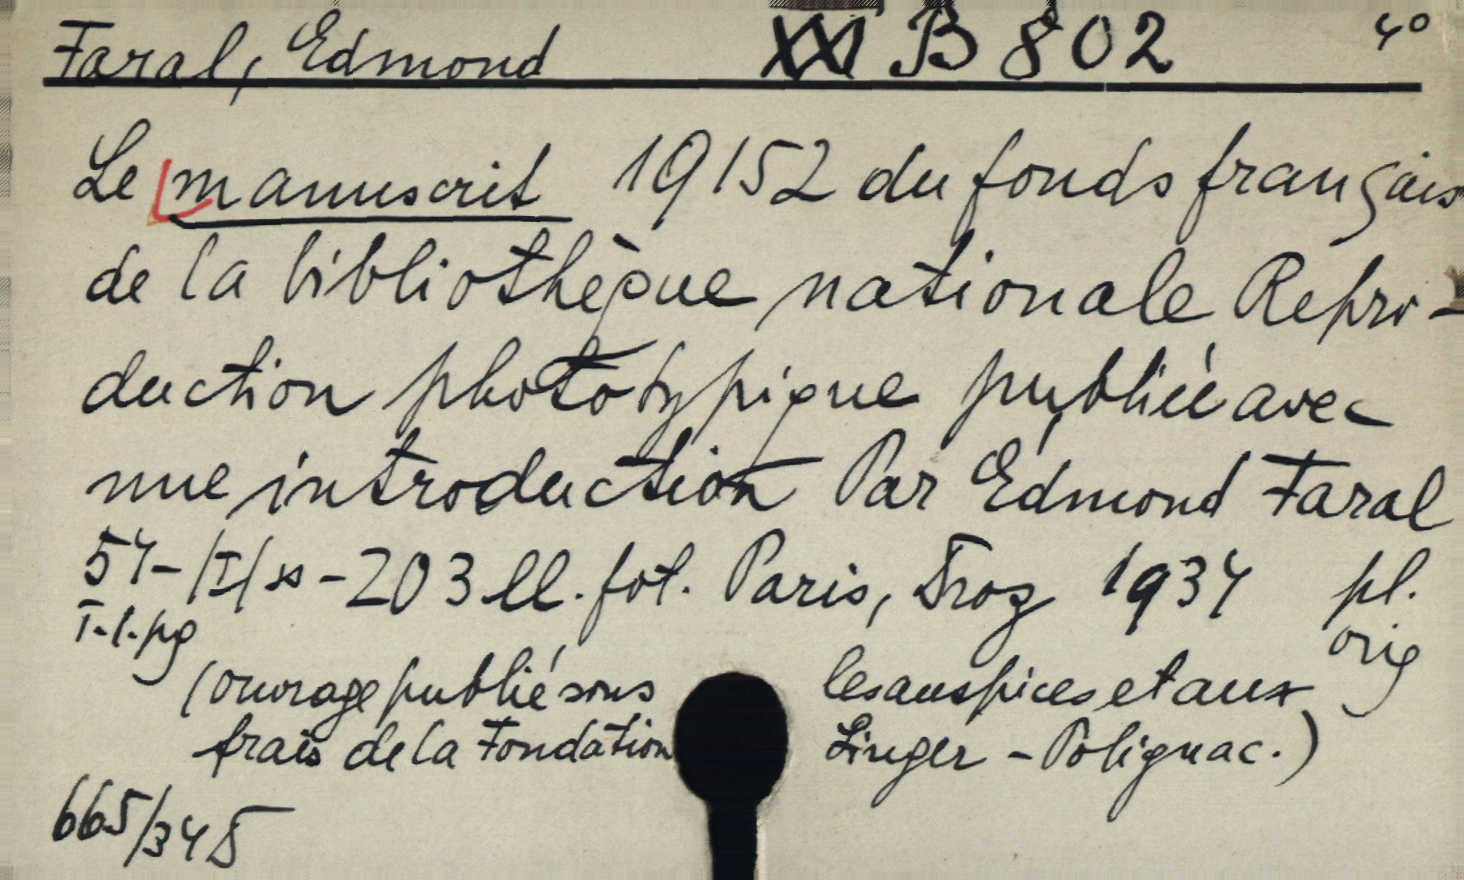 Faral, Edmond XXI B 802 4°
Le manuscrit 19152 du fonds français
de la bibliothèque nationale Repro-
duction phototypique publiée avec
une introduction Par Edmond Faral
54-/I/ss-203 ll. fol. Paris, Droz 1934 pl.
I.1.pg orig
(ouvrage publié sous les auspices et aux
frais de la Fondation Singer-Polignac.)
665/345